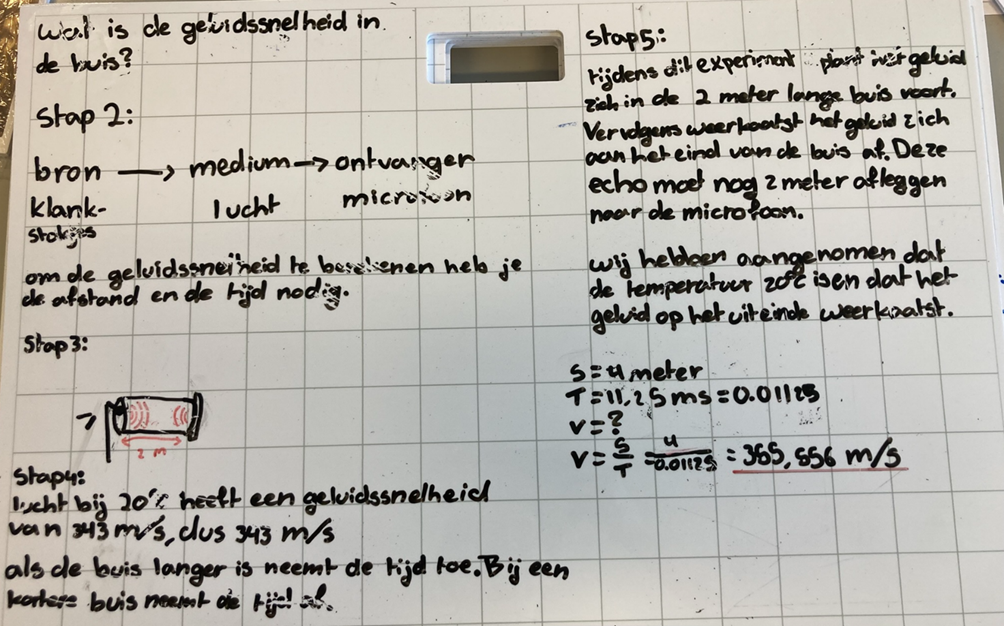 wat is de geluidssnelheid in
de buis?
Stap 2:
bron → medium → ontvanger
klank-
stokjes
lucht
microfoon
om de geluidssnelheid te berekenen heb je
de afstand en de tijd nodig.
Stap3:
2 m
Stap4:
lucht bij 20°c heeft een geluidssnelheid
van 343 m/s, dus 343 m/s
als de buis langer is neemt de tijd toe. Bij een
kortere buis neemt de tijd af.
Stap5:
tijdens dit experiment plant het geluid
zich in de 2 meter lange buis voort.
Vervolgens weerkaatst het geluid zich
aan het eind van de buis af. Deze
echo moet nog 2 meter afleggen
naar de microfoon.
wij hebben aangenomen dat
de temperatuur 20°c is en dat het
geluid op het uiteinde weerkaatst.
S = 4 meter
T = 11,25 ms = 0.01125
V = ?
V = S/T = 4/0.01125 = 365,556 m/s